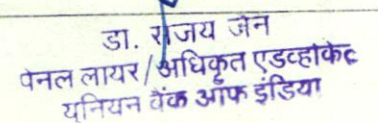 डा. राजय जैन
पेनल लायर/अधिकृत एडव्होकेट
यूनियन बैंक ऑफ इंडिया